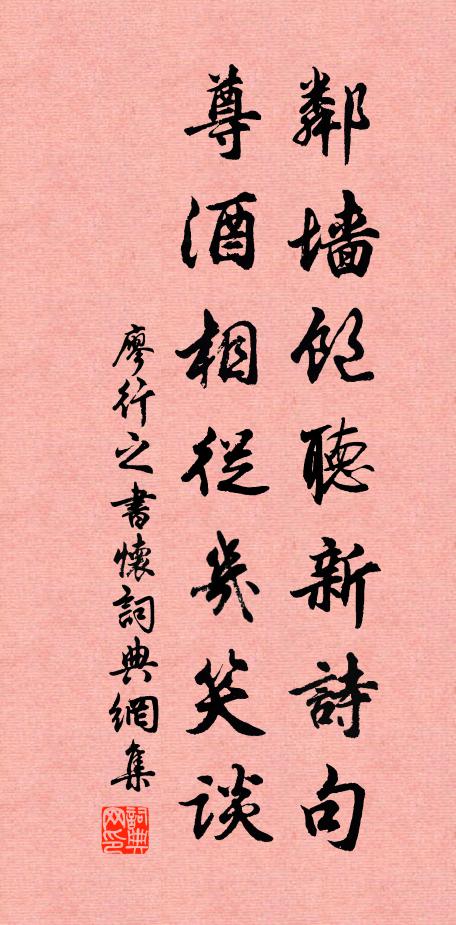 鄰墙飽聽新詩句
尊酒相從幾笑談
廖行之書懷詞典網集
詞典网印